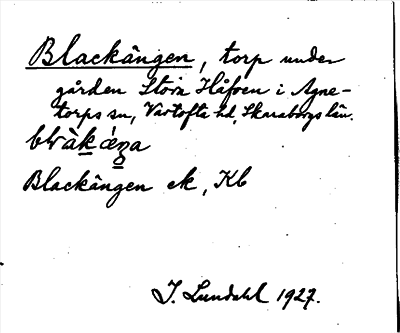 Blackängen, torp under
gården Stora Håfoen i Agne-
torps sn, Vartofta hd, Skaraborgs län.
Blackängen ek, Kb
J. Lundahl 1927.